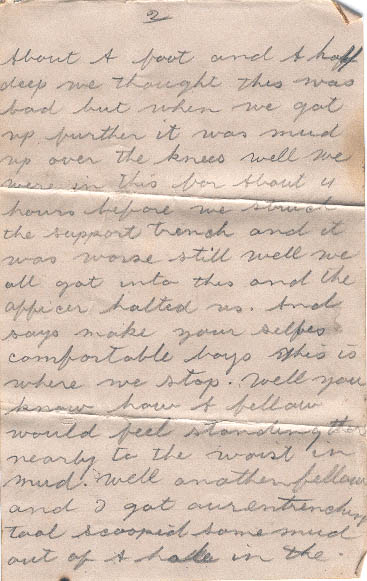 2
About A foot and A half
deep we thought this was
bad but when we got
up further it was mud
up over the knees well we
were in this for About 4
hours before we struck
the support trench and it
was worse still well we
all got into this and the
officer halted us. And
says make your selfes
comfortable boys this is
where we stop. Well you
know how A fellow
would feel standing there
nearly to the waist in
mud. Well another fellow
and I got our entrenching
tool scoopid some mud
out of A hole in the.